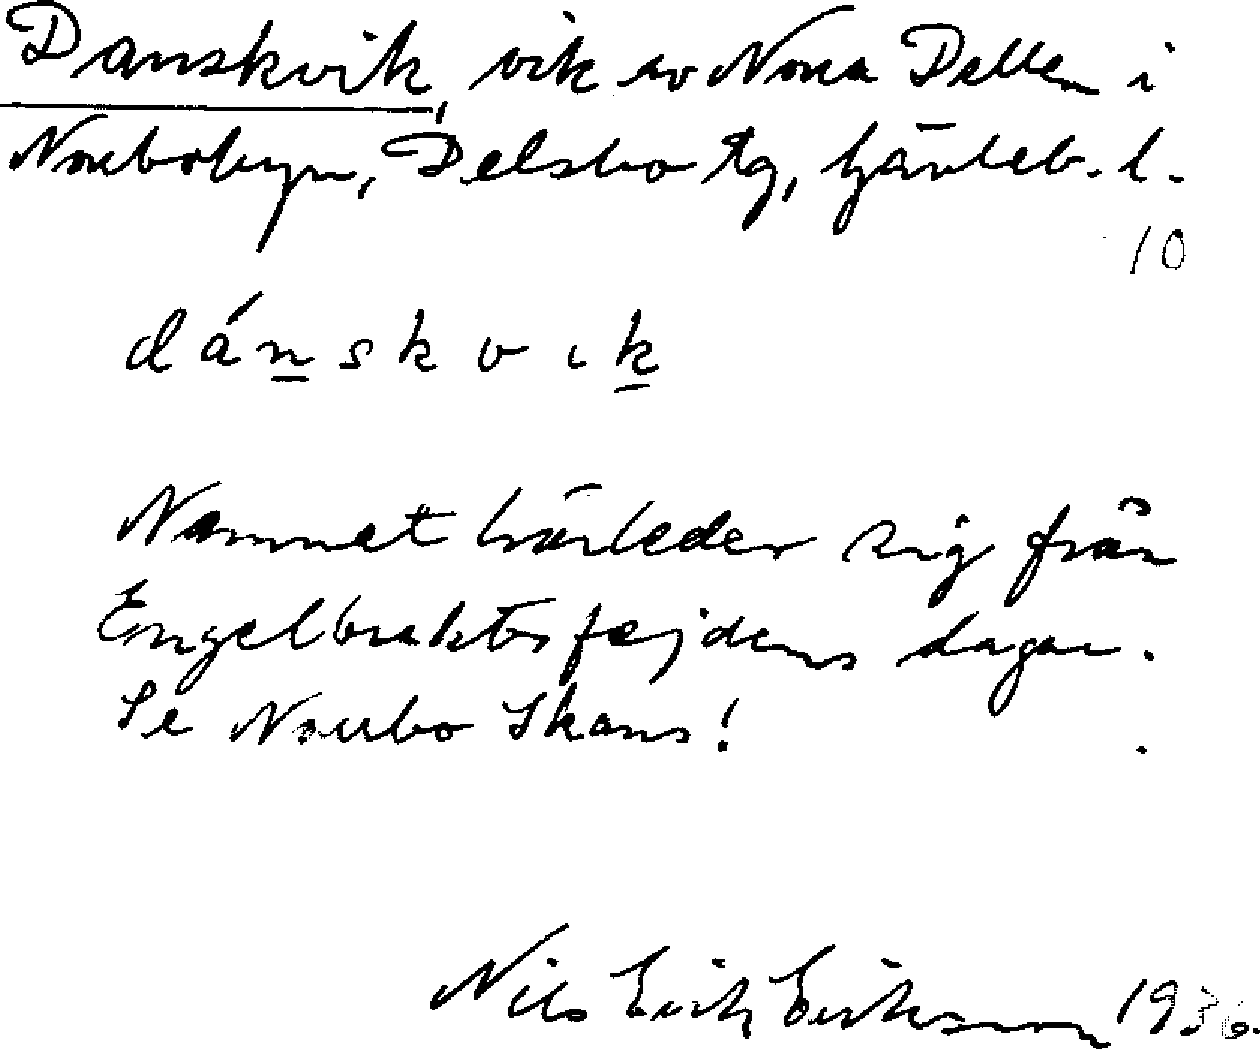 Danskvik, vik av Norra Dellen i
Norrbobyn, Delsbo tg, Gävleb. l.
10
dánskvik
Namnet härleder sig från
Engelbrektsfejdens dagar.
Se Norrbo Skans!
Nils Erik Eriksson 1936.